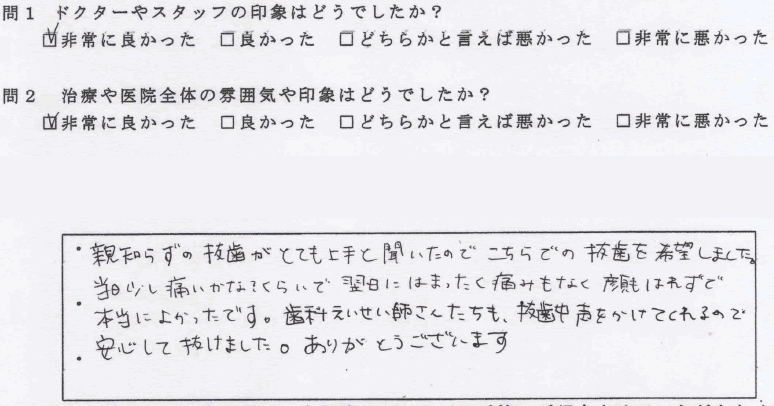 問1 ドクターやスタッフの印象はどうでしたか?
☑非常に良かった □良かった □どちらかと言えば悪かった □非常に悪かった
問2 治療や医院全体の雰囲気や印象はどうでしたか?
☑非常に良かった □良かった □どちらかと言えば悪かった □非常に悪かった
・親知らずの抜歯がとても上手と聞いたのでこちらでの抜歯を希望しました。
当日少し痛いかな?くらいで翌日にはまったく痛みもなく顔もはれずで
・本当によかったです。歯科えいせい師さんたちも、抜歯中声をかけてくれるので
・安心して抜けました。ありがとうございます